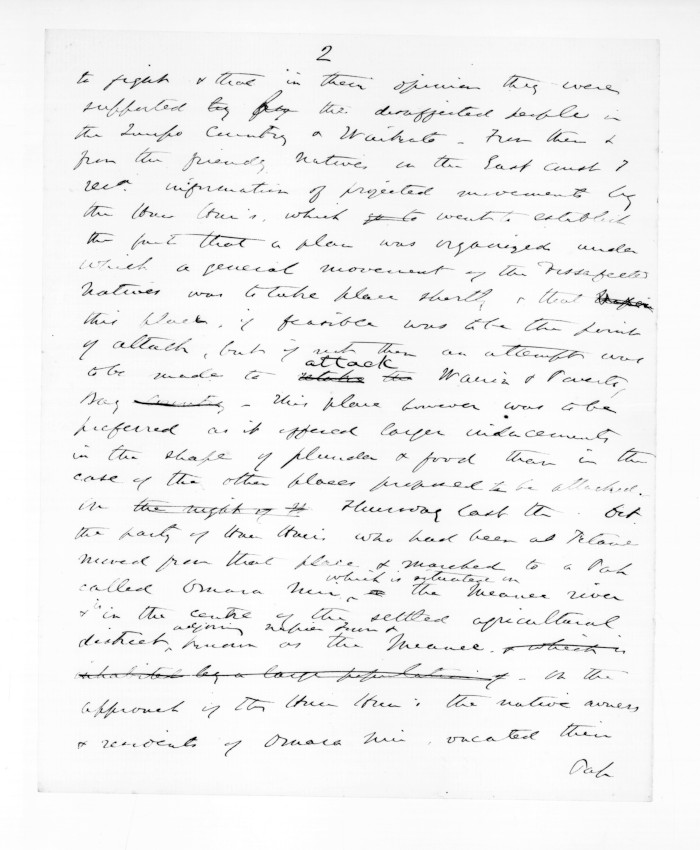 2
to fight & that in their opinion they were
supported by the disaffected people in
the Taupo Country & Waikato - From them &
from the friendly Natives on the East Coast I
recd. information of projected movements by
the Hau Hau's, which to went to establish
the fact that a plan was organized under
which a general movement of the Dissaffected
Natives was to take place shortly, & that
this place, if feasible was to be the point
of attack, but if not then an attempt was
to be made to attack Wairoa & Poverty
Bay Country - This place however was to be
preferred as it offered larger inducements
in the shape of plunder & food than in the
case of the other places proposed to be attacked.
On the night of Thursday last the Oct
the party of Hau Hau's who had been at Petane
moved from that place & marched to a Pah
called Omara Nui, which is situated on the Meanee river
& is in the centre of the settled agricultural
district, adjoining Napier known as the Meanee. & which is
inhabited by a large population of - On the
approach of the Hau Hau's the native owners
& residents of Omara Nui, vacated their
Pah